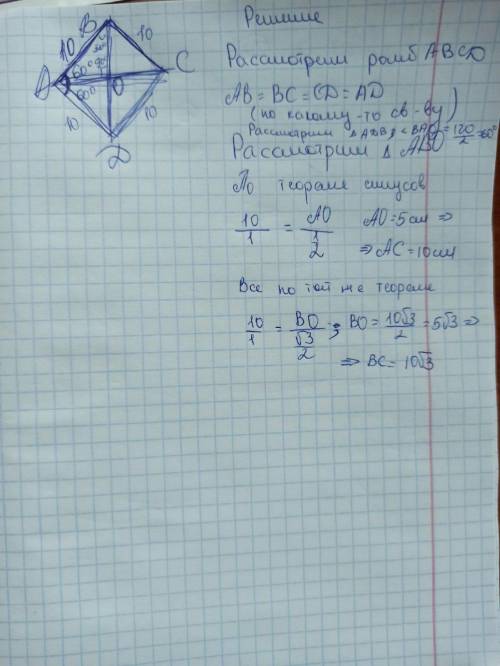 B
10
10
30°
60°
90°
A
O
C
60°
10
10
D
Решение
Рассмотрим ромб ABCD
AB = BC = CD = AD
(по какому-то св-ву)
Рассмотрим Δ ADB; < BAO = 120/2 = 60°
Рассмотрим Δ ABO
По теореме синусов
10/1 = AO/(1/2) AO = 5 см ⇒
⇒ AC = 10 см
Все по той же теореме
10/1 = BO/(√3/2) ; BO = 10√3/2 = 5√3 ⇒
⇒ BC = 10√3